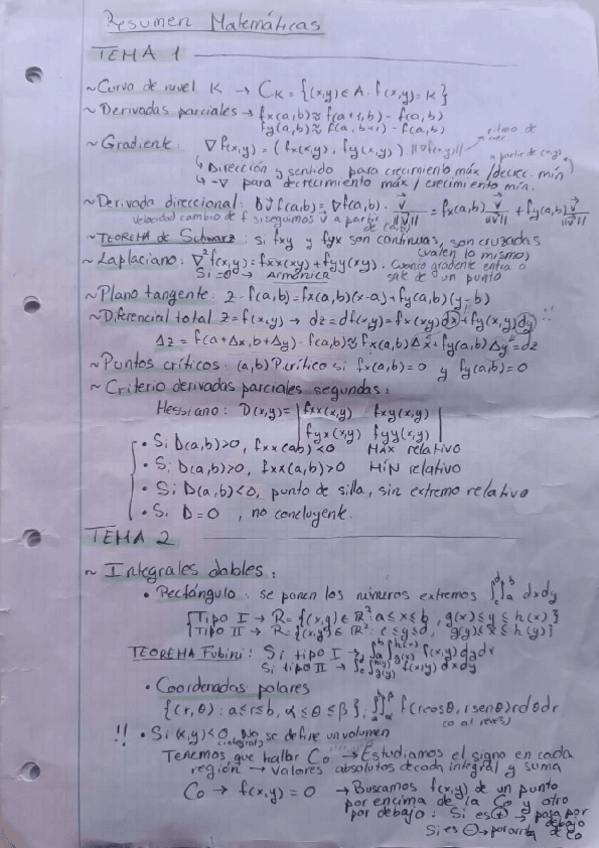 Resumen Matemáticas
TEMA 1
~Curva de nivel K → C_K = {(x,y) ∈ A : f(x,y) = K}
~Derivadas parciales → fx(a,b) ≈ f(a+1,b) - f(a,b)
fy(a,b) ≈ f(a,b+1) - f(a,b)
~Gradiente: ∇f(x,y) = (fx(x,y), fy(x,y)) ||∇f(x,y)|| ritmo de
a partir de (x,y)
↳ Dirección y sentido para crecimiento máx / decrec. mín
↳ -∇ para decrecimiento máx / crecimiento mín.
~Derivada direccional: D_v f(a,b) = ∇f(a,b) · v/||v|| = fx(a,b) v/||v|| + fy(a,b) v/||v||
Velocidad cambio de f si seguimos v a partir de (a,b)
~TEOREMA de Schwarz: si fxy y fyx son continuas, son cruzadas
(valen lo mismo)
~Laplaciano: ∇²f(x,y) = fxx(x,y) + fyy(x,y). Cuanto gradiente entra o
Si =0 → Armónica sale de un punto
~Plano tangente: z - f(a,b) = fx(a,b)(x-a) + fy(a,b)(y-b)
~Diferencial total z = f(x,y) → dz = df(x,y) = fx(x,y)dx + fy(x,y)dy !!
Δz = f(a+Δx, b+Δy) - f(a,b) ≈ fx(a,b)Δx + fy(a,b)Δy = dz
~Puntos críticos: (a,b) P.crítico si fx(a,b) = 0 y fy(a,b) = 0
~Criterio derivadas parciales segundas:
Hessiano: D(x,y) = | fxx(x,y) fxy(x,y) |
| fyx(x,y) fyy(x,y) |
• Si D(a,b)>0, fxx(ab)<0 MÁX relativo
• Si D(a,b)>0, fxx(a,b)>0 MÍN relativo
• Si D(a,b)<0, punto de silla, sin extremo relativo
• Si D=0, no concluyente.
TEMA 2
~Integrales dobles:
• Rectángulo: se ponen los números extremos ∫_c^d ∫_a^b dxdy
Tipo I → R = {(x,y) ∈ ℝ² : a ≤ x ≤ b, g(x) ≤ y ≤ h(x)}
Tipo II → R = {(x,y) ∈ ℝ² : c ≤ y ≤ d, g(y) ≤ x ≤ h(y)}
TEOREMA Fubini: Si tipo I → ∫_a^b ∫_g(x)^h(x) f(x,y) dydx
Si tipo II → ∫_c^d ∫_g(y)^h(y) f(x,y) dxdy
• Coordenadas polares
{(r,θ) : a ≤ r ≤ b, α ≤ θ ≤ β}. ∫_a^b ∫_α^β f(rcosθ, rsenθ) r dθdr
(o al revés)
!! • Si (x,y) < 0, No se define un volumen
(integral)
Tenemos que hallar C₀ → Estudiamos el signo en cada
región → Valores absolutos de cada integral y suma
C₀ → f(x,y) = 0 → Buscamos f(x,y) de un punto
por encima de la C₀ y otro
por debajo: Si es ⊕ → pasa por
debajo
Si es ⊖ → por arriba de C₀